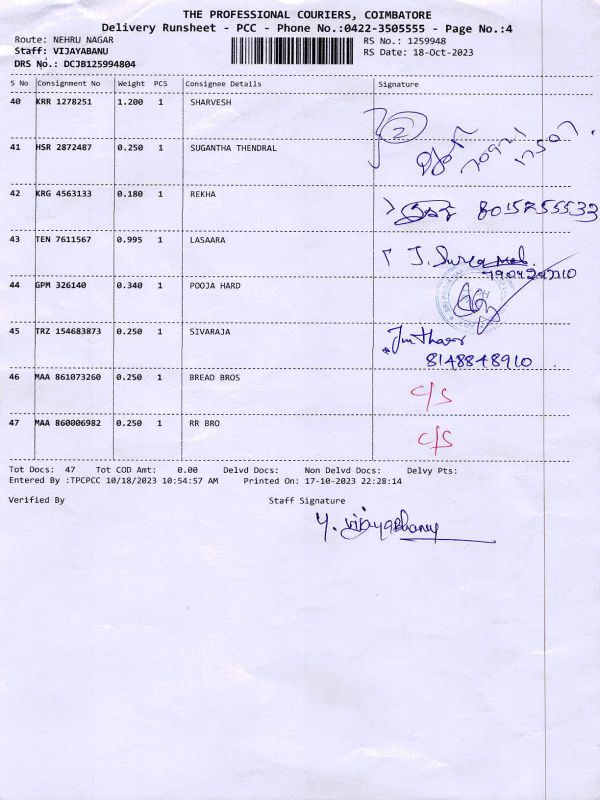 THE PROFESSIONAL COURIERS, COIMBATORE
Delivery Runsheet - PCC - Phone No.:0422-3505555 - Page No.:4
Route: NEHRU NAGAR RS No.: 1259948
Staff: VIJAYABANU RS Date: 18-Oct-2023
DRS No.: DCJB125994804
S No Consignment No Weight PCS Consignee Details Signature
40 KRR 1278251 1.200 1 SHARVESH
2
41 HSR 2872487 0.250 1 SUGANTHA THENDRAL
42 KRG 4563133 0.180 1 REKHA
43 TEN 7611567 0.995 1 LASAARA J.
44 GPM 326140 0.340 1 POOJA HARD
45 TRZ 154683873 0.250 1 SIVARAJA
8148848910
46 MAA 861073260 0.250 1 BREAD BROS c/s
47 MAA 860006982 0.250 1 RR BRO c/s
Tot Docs: 47 Tot COD Amt: 0.00 Delvd Docs: Non Delvd Docs: Delvy Pts:
Entered By :TPCPCC 10/18/2023 10:54:57 AM Printed On: 17-10-2023 22:28:14
Verified By Staff Signature
Y. Vijayabhanu